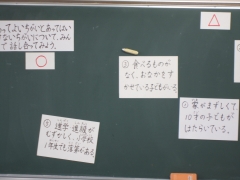 ってよいちがいとあってはい
ないちがいについて、みん
で話し合ってみよう。
○
△
② 食べるものが
なく、おなかをす
かせている子どもがいる。
① 家がまずしくて、
10才の子どもが
はたらいている。
③ 進学 進級が
むずかしく、小学校
1年生でも落第がある。